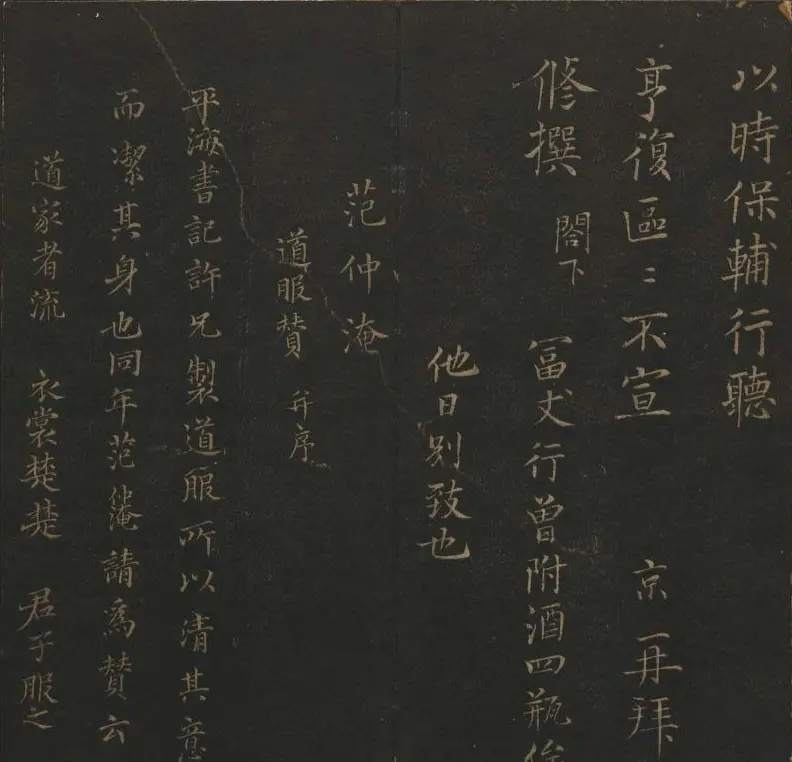 以時保輔行聽
亨復區〻不宣 京再拜
修撰 閣下 冨丈行曾附酒四瓶俟
他日别致也
范仲淹
道服贊 并序
平海書記許兄製道服所以清其意
而潔其身也同年范仲淹請爲贊云
道家者流 衣裳楚楚 君子服之